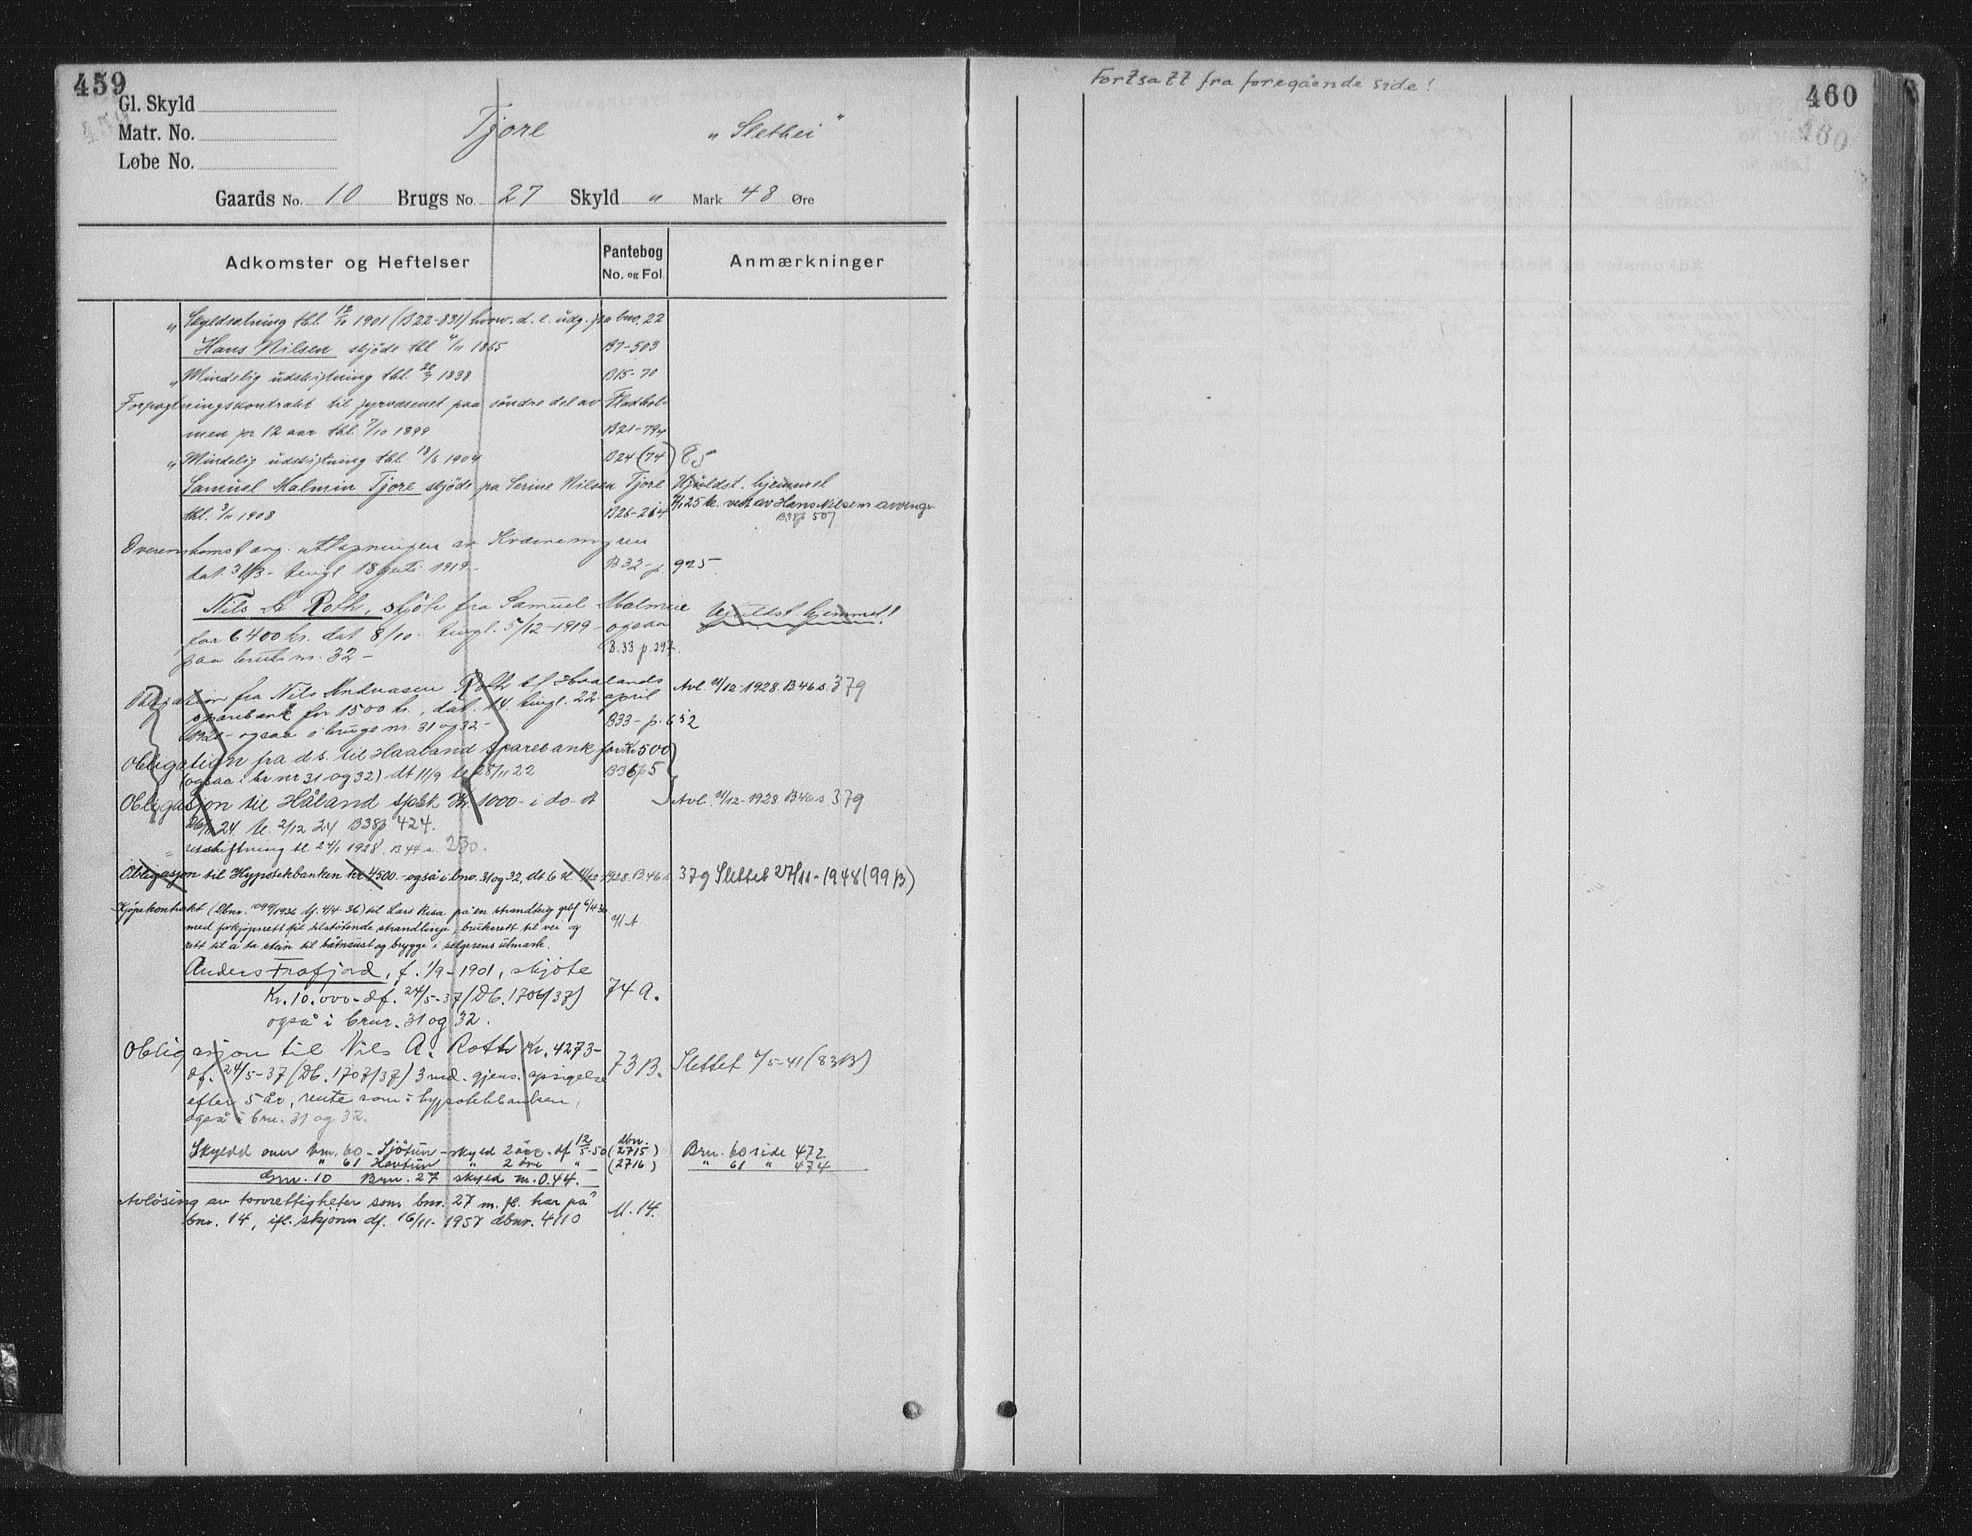 459
Gl. Skyld
Matr. No.
Løbe No.
Tjore "Slethei"
Gaards No. 10 Brugs No. 27 Skyld " Mark 48 Øre
Adkomster og Heftelser
Pantebog
No. og Fol.
Anmærkninger
" Skyldsætning thl. 12/10 1901 (B22-831) hvorv. d. e. udg. fra bno. 22
Hans Nilsen skjøde thl 1865 B7-503
" Mindelig udskiftning thl. 1838 B15-70
Forpagtningskontrakt til fyrvæsenet paa søndre del av Fladhol-
men for 12 aar thl. 7/10 1899 B21-794
" Mindelig udskiftning thl. 18/6 1904 B24 (74) 85
Samuel Malmin Tjore skjøde fra Serine Nilsen Tjore Ufuldst. hjemmel
thl. 3/11 1908 B26-264 25 kr. vedt av Hans Nilsens arvinger
B38p 507
Overenskomst ang. uttapningen av Kvernemyren
dat. 31/3- tingl 18 juli 1919- B32-p. 925
Nils A Roth, skjöte fra Samuel Malmin Ufuldst. hjemmel!
for 6400 kr. dat 8/10- tingl. 5/12-1919- ogsaa
paa bruks nr. 32- B.33 p. 297.
Obligation fra Nils Andreasen Roth til Haalands Avl. 11/12-1928. B.46 s. 379
sparebank for 1500 kr., dat. 14. tingl. 22. april
1920- ogsaa i brugs nr. 31 og 32- B33-p. 652
Obligation fra ds. til Haaland sparebank for Kr 500
(ogsaa i br nr 31 og 32) dt 11/9 tl 28/11 22 B36p5
Obligasjon til Håland spbk Kr 1000- i do- dt Avl. 11/12-1928. B46 s 379
26/11 24. tl. 2/12 24 B38p 424.
" utskiftning tl. 24/1 1928. B.44 s. 230.
Obligasjon til Hypotekbanken kr 4500.- også i bno. 31 og 32, dt. 6 tl 11/12 1928. B.46 s. 379 Slettet 27/11-1948 (99B)
Kjøpekontrakt (Dbnr. 1099/1936 df. 4/4-36) til Lars Risa på en strandteig
med forkjøpsrett til tilstøtende strandlinje, bruksrett til vei og
rett til å ta stein til båtnaust og brygge i selgerens utmark.
Anders Frafjord, f. 1/9-1901, skjøte
Kr. 10.000- df. 24/5-37 (Db. 1706/37) 74 A.
også i brnr. 31 og 32.
Obligasjon til Nils A. Roth Kr. 4273- 73B. Slettet /5-41 (83B)
df. 24/5-37 (Db. 1707/37) 3 md. gjens. opsigelse
efter 5 år, rente som i hypotekbanken,
også i bnr. 31 og 32.
Skyldd over bnr. 60 - Sjötun - skyld 2 öre - df 12/5-50 dbnr. (2715) Brn. 60 side 472
" 61 Havtun " 2 öre " (2716) " 61 " 474
Gnr. 10 Brn. 27 skyld m. 0.44.
Avløsing av torvrettigheter som bnr. 27 m. fl. har på
bnr. 14, ifl. skjønn df. 16/11-1957 dbnr. 4110 M. 14.
Fortsatt fra foregående side!
460